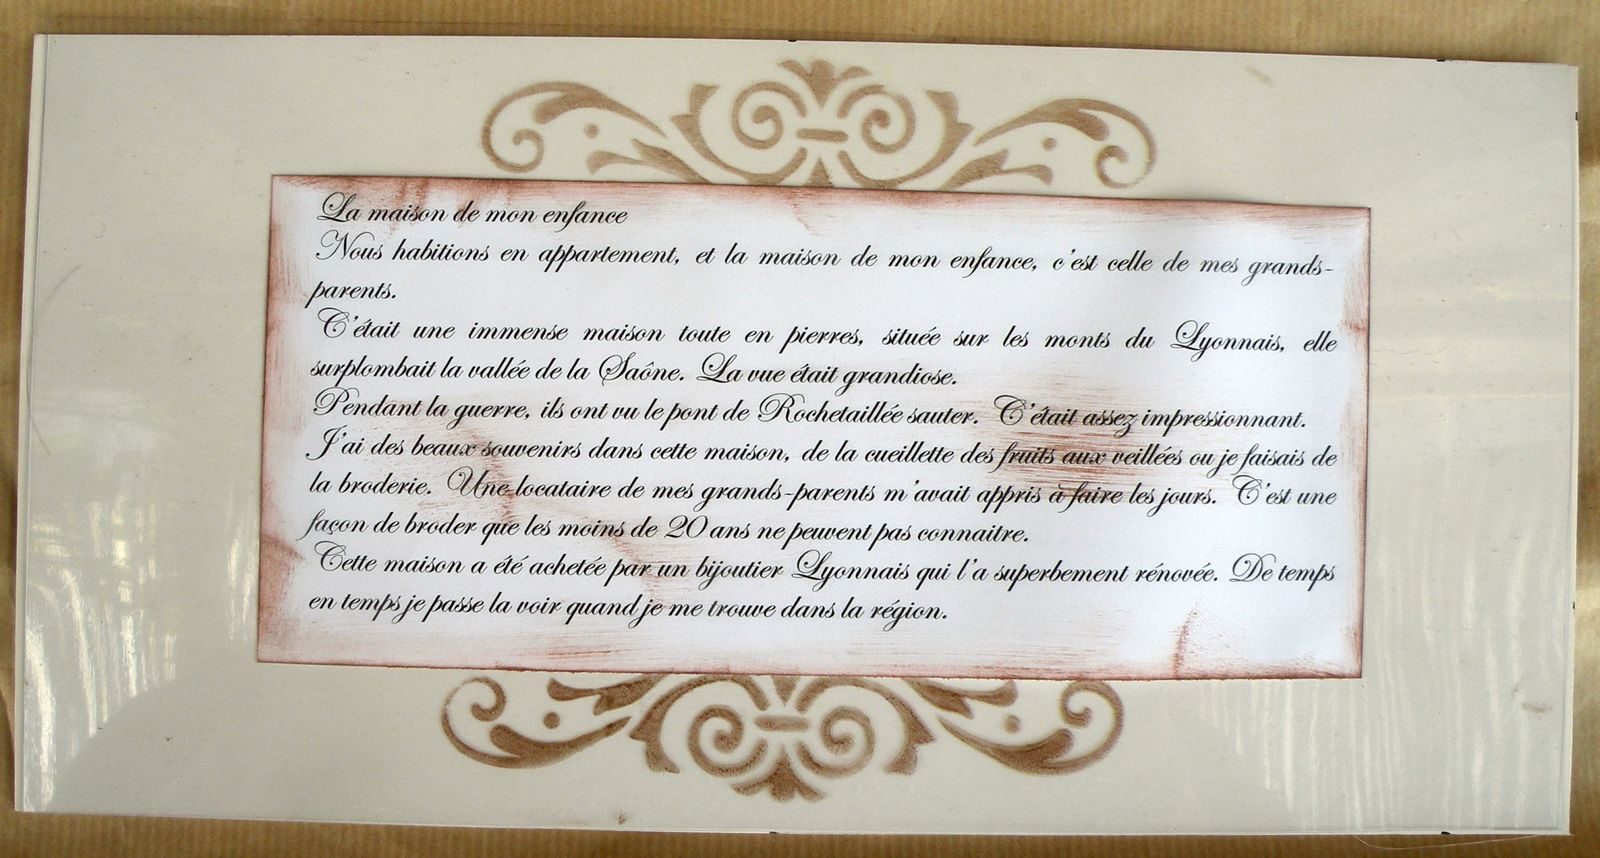 La maison de mon enfance
Nous habitions en appartement, et la maison de mon enfance, c'est celle de mes grands-
parents.
C'était une immense maison toute en pierres, située sur les monts du Lyonnais, elle
surplombait la vallée de la Saône. La vue était grandiose.
Pendant la guerre, ils ont vu le pont de Rochetaillée sauter. C'était assez impressionnant.
J'ai des beaux souvenirs dans cette maison, de la cueillette des fruits aux veillées ou je faisais de
la broderie. Une locataire de mes grands-parents m'avait appris à faire les jours. C'est une
façon de broder que les moins de 20 ans ne peuvent pas connaitre.
Cette maison a été achetée par un bijoutier Lyonnais qui l'a superbement rénovée. De temps
en temps je passe la voir quand je me trouve dans la région.